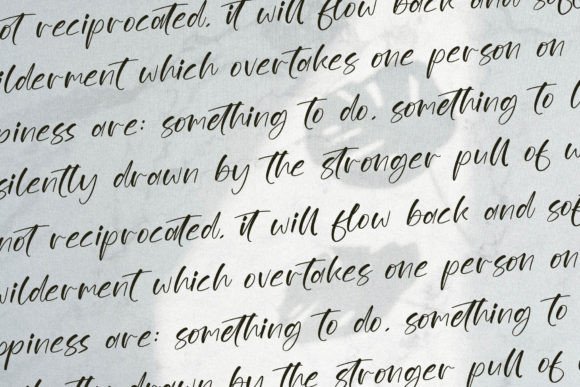 not reciprocated, it will flow back and sof
ilderment which overtakes one person on
piness are: something to do, something to l
silently drawn by the stronger pull of w
not reciprocated, it will flow back and sof
wilderment which overtakes one person on
ppiness are: something to do, something to
drawn by the stronger pull of